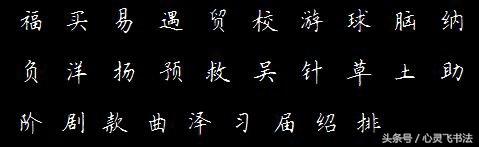 福 买 易 遇 贸 校 游 球 脑 纳
负 洋 扬 预 救 吴 针 草 土 助
阶 剧 款 曲 泽 习 届 绍 排
头条号 / 心灵飞书法